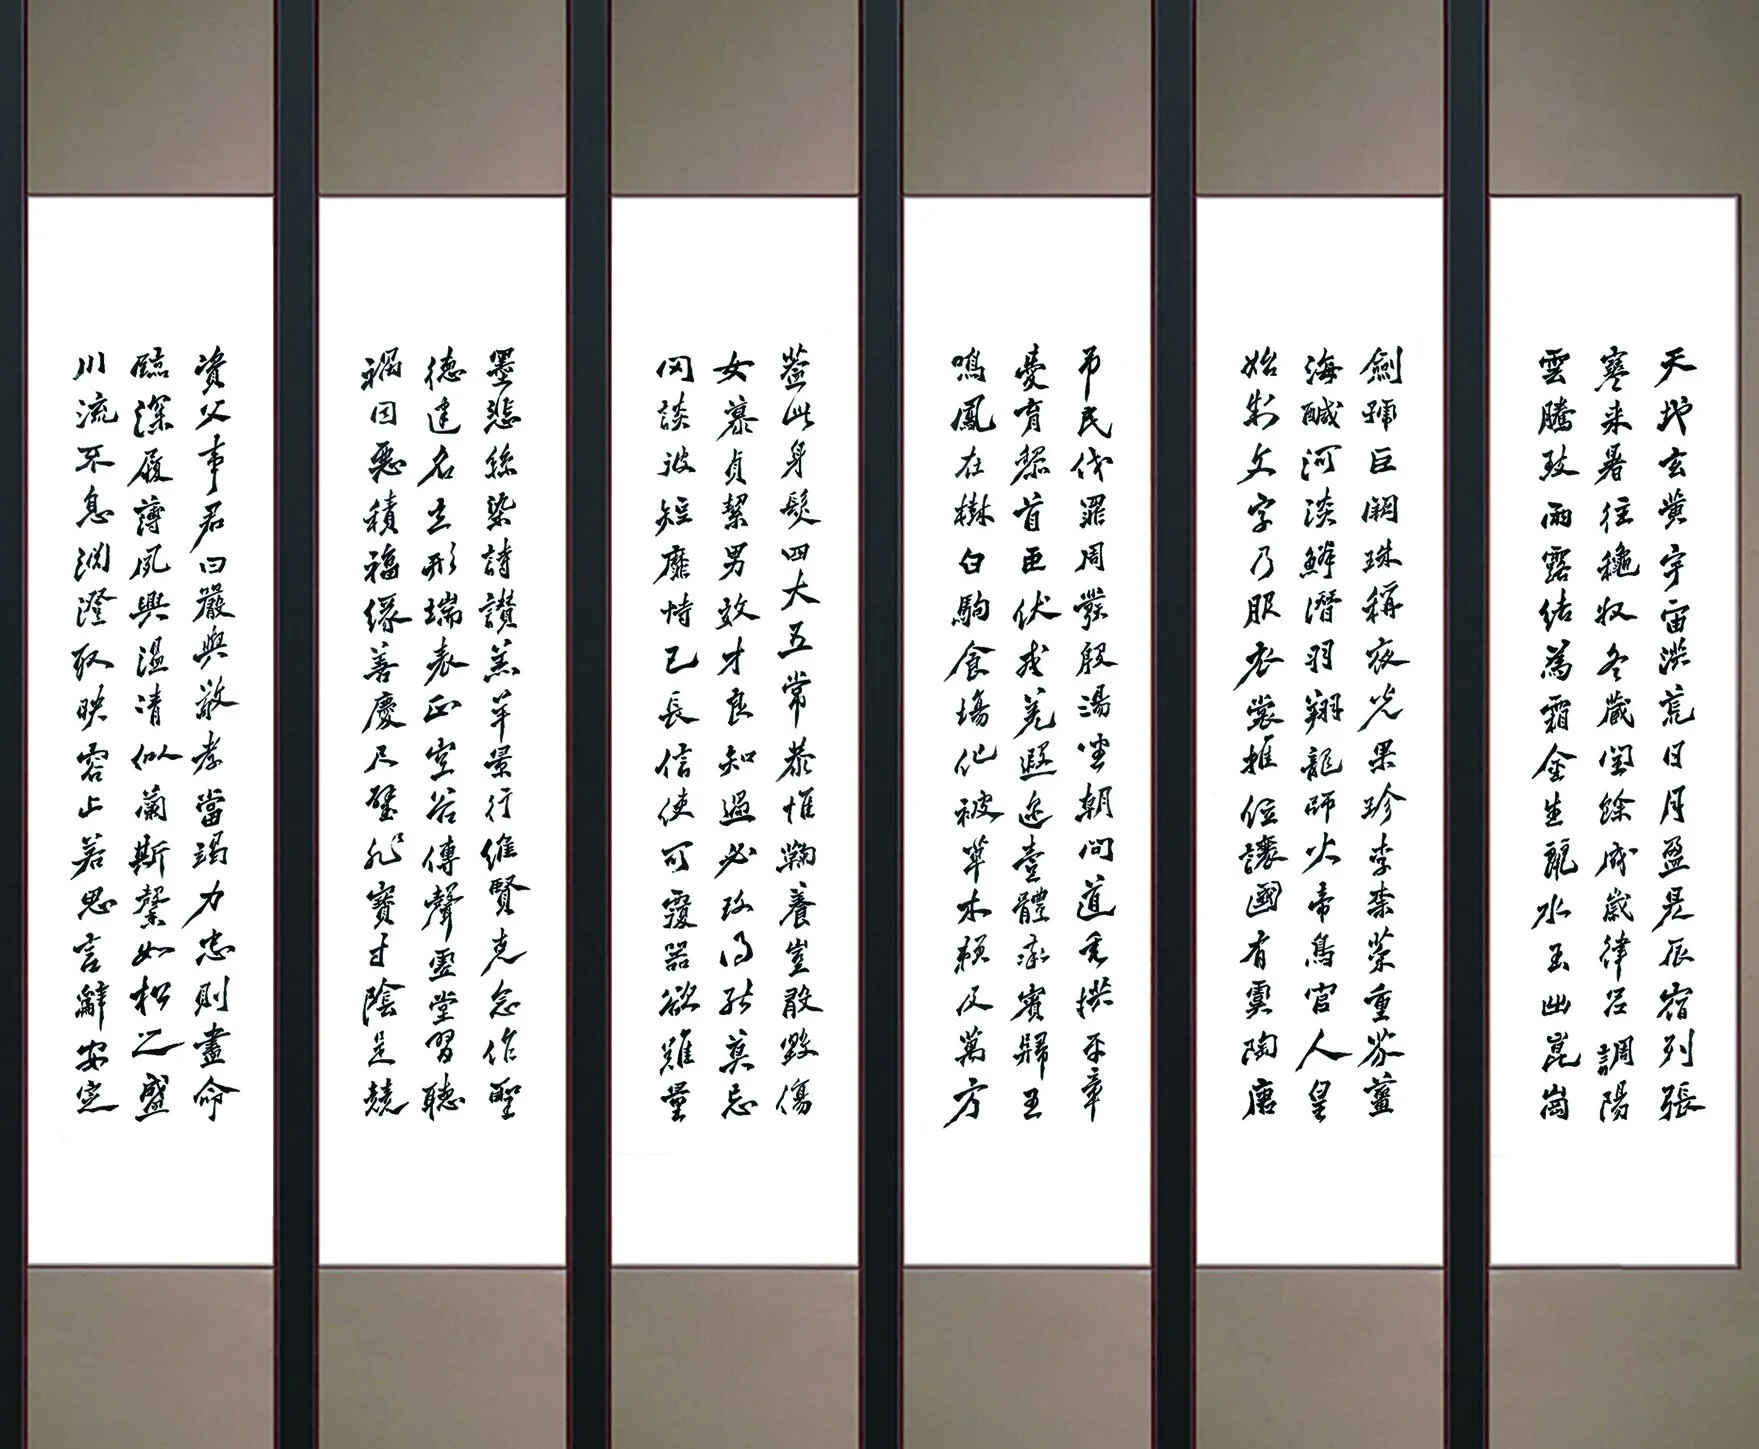 天地玄黃宇宙洪荒日月盈昃辰宿列張
寒来暑往秋收冬藏閏餘成歲律呂調陽
雲騰致雨露結為霜金生麗水玉出崑崗
劍號巨闕珠稱夜光果珍李柰菜重芥薑
海鹹河淡鱗潛羽翔龍師火帝鳥官人皇
始制文字乃服衣裳推位讓國有虞陶唐
弔民伐罪周發殷湯坐朝問道垂拱平章
愛育黎首臣伏戎羌遐迩壹體率賓歸王
鳴鳳在樹白駒食場化被草木賴及萬方
蓋此身髮四大五常恭惟鞠養豈敢毀傷
女慕貞絜男效才良知過必改得能莫忘
罔談彼短靡恃己長信使可覆器欲難量
墨悲絲染詩讚羔羊景行維賢克念作聖
德建名立形端表正空谷傳聲虛堂習聽
禍因惡積福緣善慶尺璧非寶寸陰是競
資父事君曰嚴與敬孝當竭力忠則盡命
臨深履薄夙興溫清似蘭斯馨如松之盛
川流不息淵澄取映容止若思言辭安定